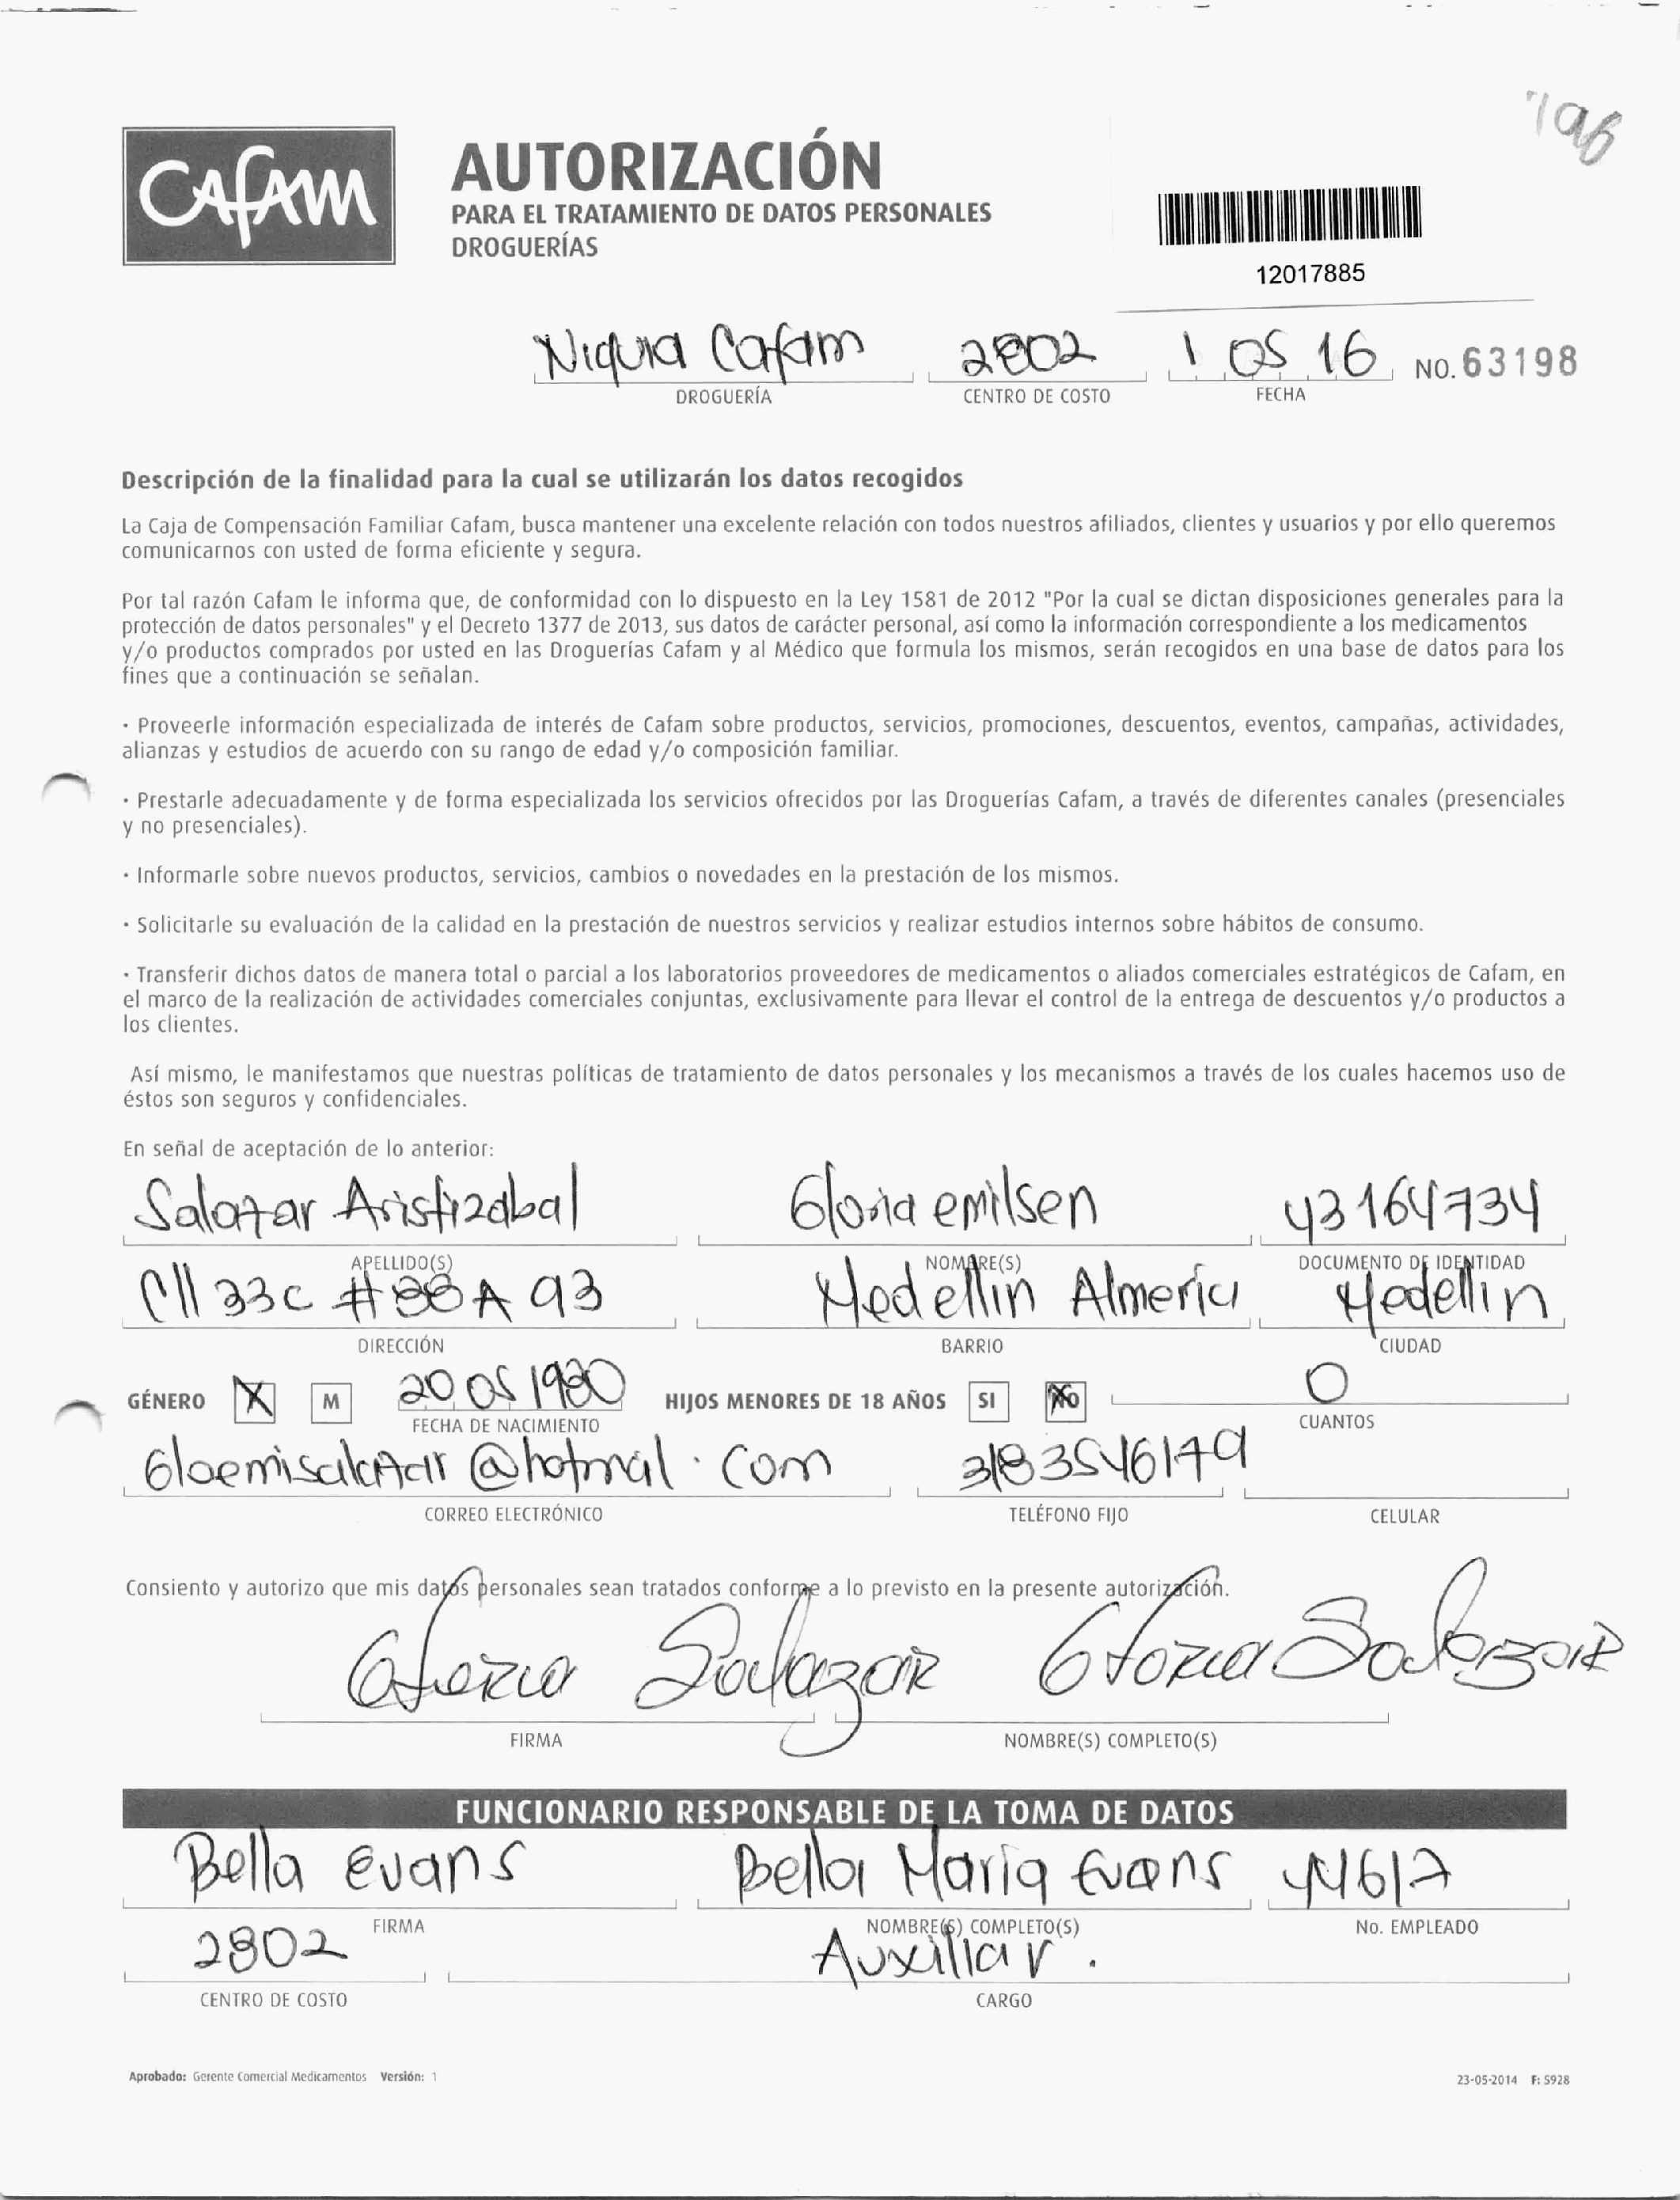 CAFAM
AUTORIZACIÓN
PARA EL TRATAMIENTO DE DATOS PERSONALES
DROGUERÍAS
12017885
Niquia Cafam 2802 1 05 16 NO. 63198
DROGUERÍA CENTRO DE COSTO FECHA
Descripción de la finalidad para la cual se utilizarán los datos recogidos
La Caja de Compensación Familiar Cafam, busca mantener una excelente relación con todos nuestros afiliados, clientes y usuarios y por ello queremos
comunicarnos con usted de forma eficiente y segura.
Por tal razón Cafam le informa que, de conformidad con lo dispuesto en la Ley 1581 de 2012 "Por la cual se dictan disposiciones generales para la
protección de datos personales" y el Decreto 1377 de 2013, sus datos de carácter personal, así como la información correspondiente a los medicamentos
y/o productos comprados por usted en las Droguerías Cafam y al Médico que formula los mismos, serán recogidos en una base de datos para los
fines que a continuación se señalan.
· Proveerle información especializada de interés de Cafam sobre productos, servicios, promociones, descuentos, eventos, campañas, actividades,
alianzas y estudios de acuerdo con su rango de edad y/o composición familiar.
· Prestarle adecuadamente y de forma especializada los servicios ofrecidos por las Droguerías Cafam, a través de diferentes canales (presenciales
y no presenciales).
· Informarle sobre nuevos productos, servicios, cambios o novedades en la prestación de los mismos.
· Solicitarle su evaluación de la calidad en la prestación de nuestros servicios y realizar estudios internos sobre hábitos de consumo.
· Transferir dichos datos de manera total o parcial a los laboratorios proveedores de medicamentos o aliados comerciales estratégicos de Cafam, en
el marco de la realización de actividades comerciales conjuntas, exclusivamente para llevar el control de la entrega de descuentos y/o productos a
los clientes.
Así mismo, le manifestamos que nuestras políticas de tratamiento de datos personales y los mecanismos a través de los cuales hacemos uso de
éstos son seguros y confidenciales.
En señal de aceptación de lo anterior:
Salazar Aristizabal Gloria emilsen 43164734
APELLIDO(S) NOMBRE(S) DOCUMENTO DE IDENTIDAD
Cll 33c #88A 93 Medellin Almeria Medellin
DIRECCIÓN BARRIO CIUDAD
GÉNERO X M 20 05 1980 HIJOS MENORES DE 18 AÑOS SI NO 0
FECHA DE NACIMIENTO CUANTOS
@hotmail.com 3183546179
CORREO ELECTRÓNICO TELÉFONO FIJO CELULAR
Consiento y autorizo que mis datos personales sean tratados conforme a lo previsto en la presente autorización.
Gloria Salazar Gloria Salazar
FIRMA NOMBRE(S) COMPLETO(S)
FUNCIONARIO RESPONSABLE DE LA TOMA DE DATOS
Bella Evans Bella Maria Evans 44617
FIRMA NOMBRE(S) COMPLETO(S) No. EMPLEADO
2802 Auxiliar.
CENTRO DE COSTO CARGO
Aprobado: Gerente Comercial Medicamentos Versión: 1 23-05-2014 F: 5928